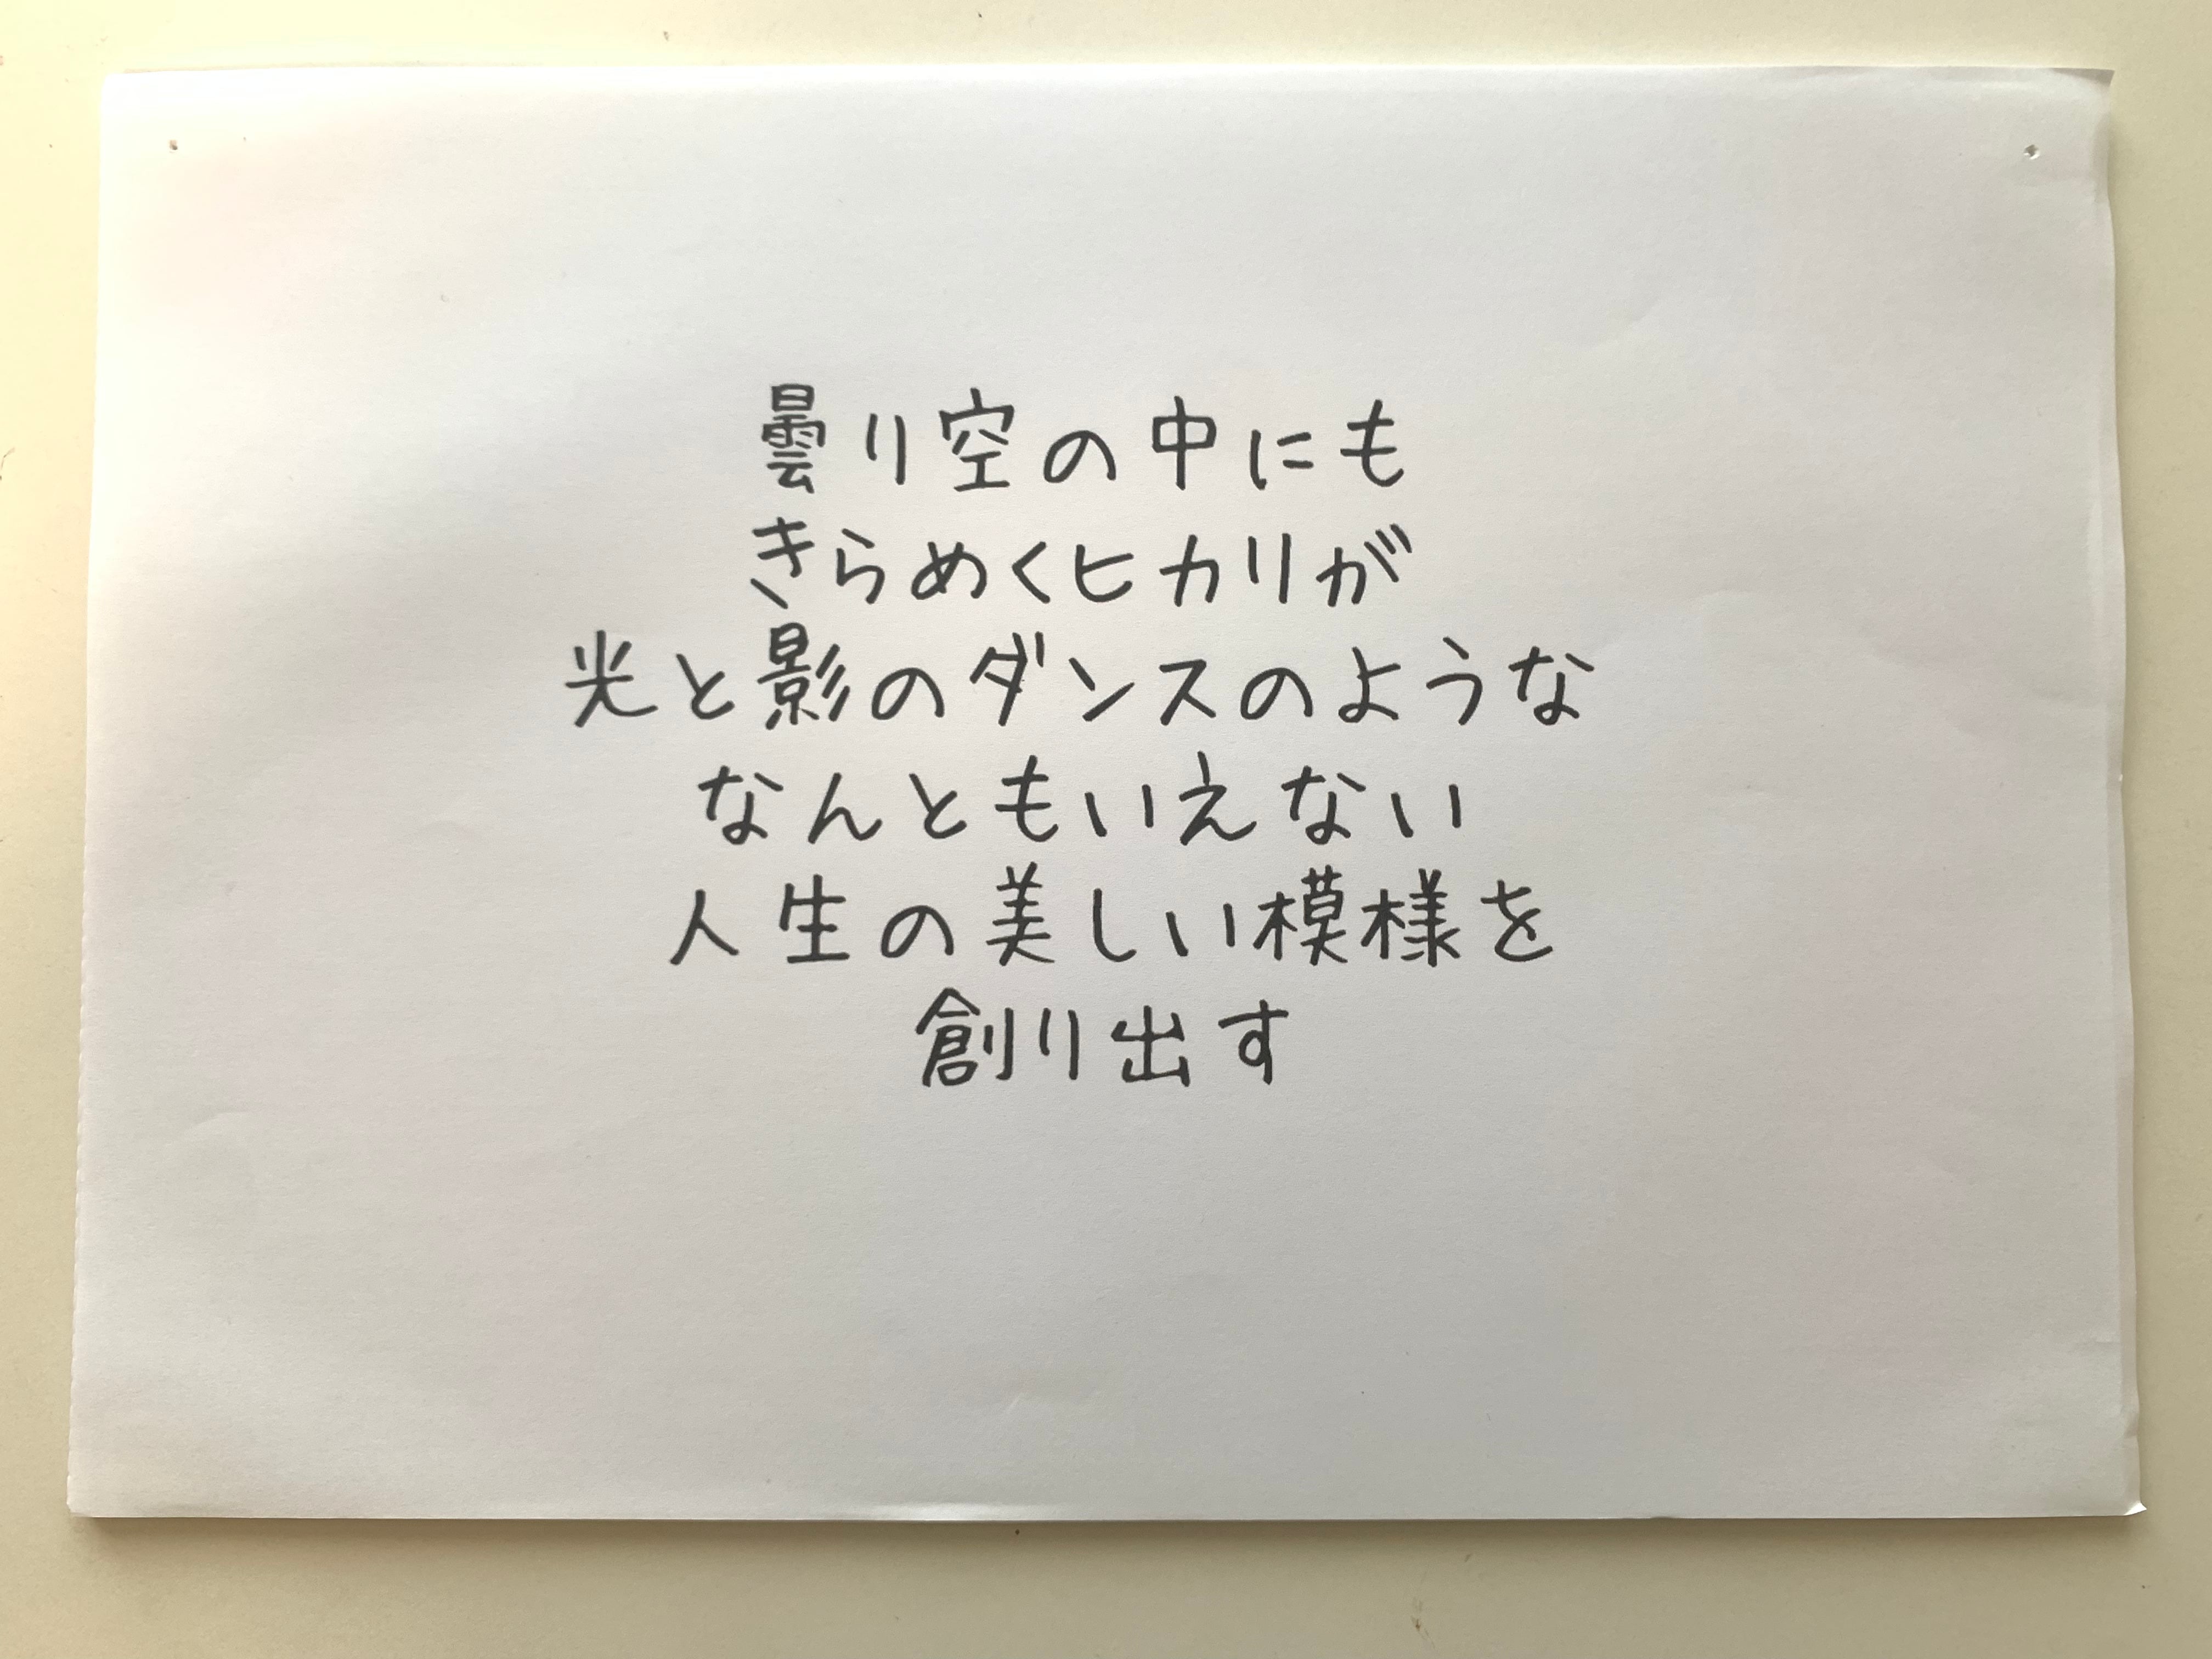 曇り空の中にも
きらめくヒカリが
光と影のダンスのような
なんともいえない
人生の美しい模様を
創り出す